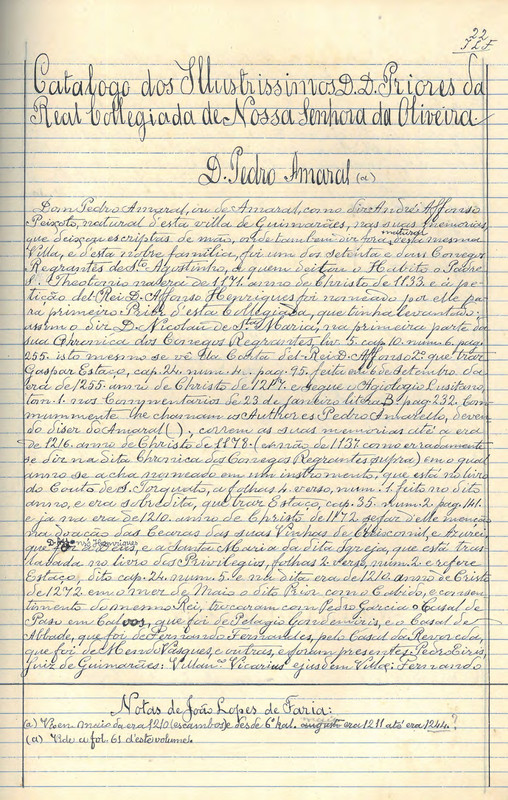 22
J L F
Catalogo dos Illustrissimos D. D. Priores da
Real Collegiada de Nossa Senhora da Oliveira
D. Pedro Amaral (a)
Dom Pedro Amaral, ou de Amaral, como diz André Affonso
Peixoto, natural d'esta villa de Guimarães, nas suas memorias,
que deixou escriptas de mão, onde tambem diz fora natural desta mesma
Villa, e d'esta nobre familia, foi um dos setenta e dous Conegos
Regrantes de Sto Agostinho, a quem deitou o Habito o Padre
S. Theotonio na era de 1171. anno de Christo de 1133. e á pe-
tição del-Rei D. Affonso Henriques foi nomeado por elle pa-
ra primeiro Prior d'esta Collegiada, que tinha levantado:
assim o diz D. Nicolau de Sta Maria, na primeira parte da
sua Chronica dos Conegos Regrantes, liv. 5. cap. 10. num. 6. pag.
255. isto mesmo se vê da Conta del-Rei D. Affonso 2º que traz
Gaspar Estaço, cap. 24. num. 4. pag. 95. feita em 6 de Setembro da
era de 1255. anno de Christo de 1217. e segue o Agiologio Lusitano,
tom. 1. nos Commentarios de 23 de janeiro litra B. pag. 232. Com-
mummente lhe chamam os Authores Pedro Amarello, deven-
do dizer do Amaral ( ), correm as suas memorias até a era
de 1216. anno de Christo de 1178. (e não de 1137 como erradamente
se diz na dita Chronica dos Conegos Regrantes supra) em o qual
anno se acha nomeado em um instrumento, que está no livro
do Couto de S. Torquato, a folhas 4. verso, num. 1. feito no dito
anno, e era sobredita, que traz Estaço, cap. 35. num. 2. pag. 141.
e já na era de 1210. anno de Christo de 1172 se faz d'elle menção
na doação das Cearas das suas Vinhas de Creixomil, e Azurei,
D. Affº Henriques
que fez a Deus, e a Santa Maria da dita Igreja, que está tras-
ladada no livro dos Privilegios, folhas 2. verso, num. 2. e refere
Estaço, dito cap. 24. num. 5. e na dita era de 1210. anno de Cristo
de 1272. em o mez de Maio o dito Prior com o Cabido, e consen-
timento do mesmo Rei, trocaram com Pedro Garcia o Casal de
Paso em Calvos, que foi de Pelagio Gondemiris, e o Casal de
Abbade, que foi de Fernando Fernandes, pelo Casal da Revoreda,
que foi de Mendo Vasques, e outras, e foram presentes: Pedr'Eiris,
Juiz de Guimarães: Villan Vicarius ejusdem Villæ: Fernando
Notas de João Lopes de Faria:
(a) Vivo em maio da era 1210 (escambos) e desde 6º kal. augusti era 1211 até era 1244.?
(a) Vide a fol. 61 d'este volume.